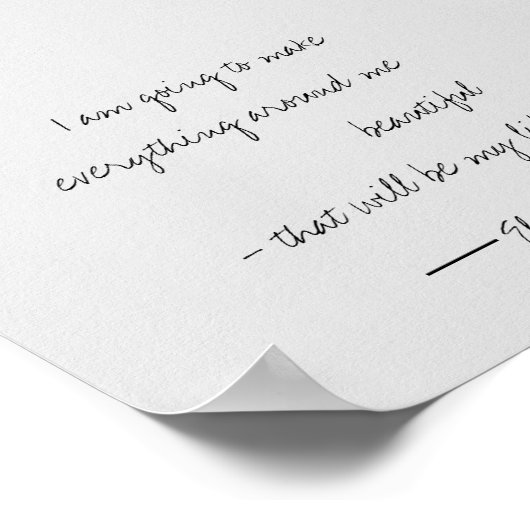 I am going to make
everything around me
beautiful
– that will be my li
— El